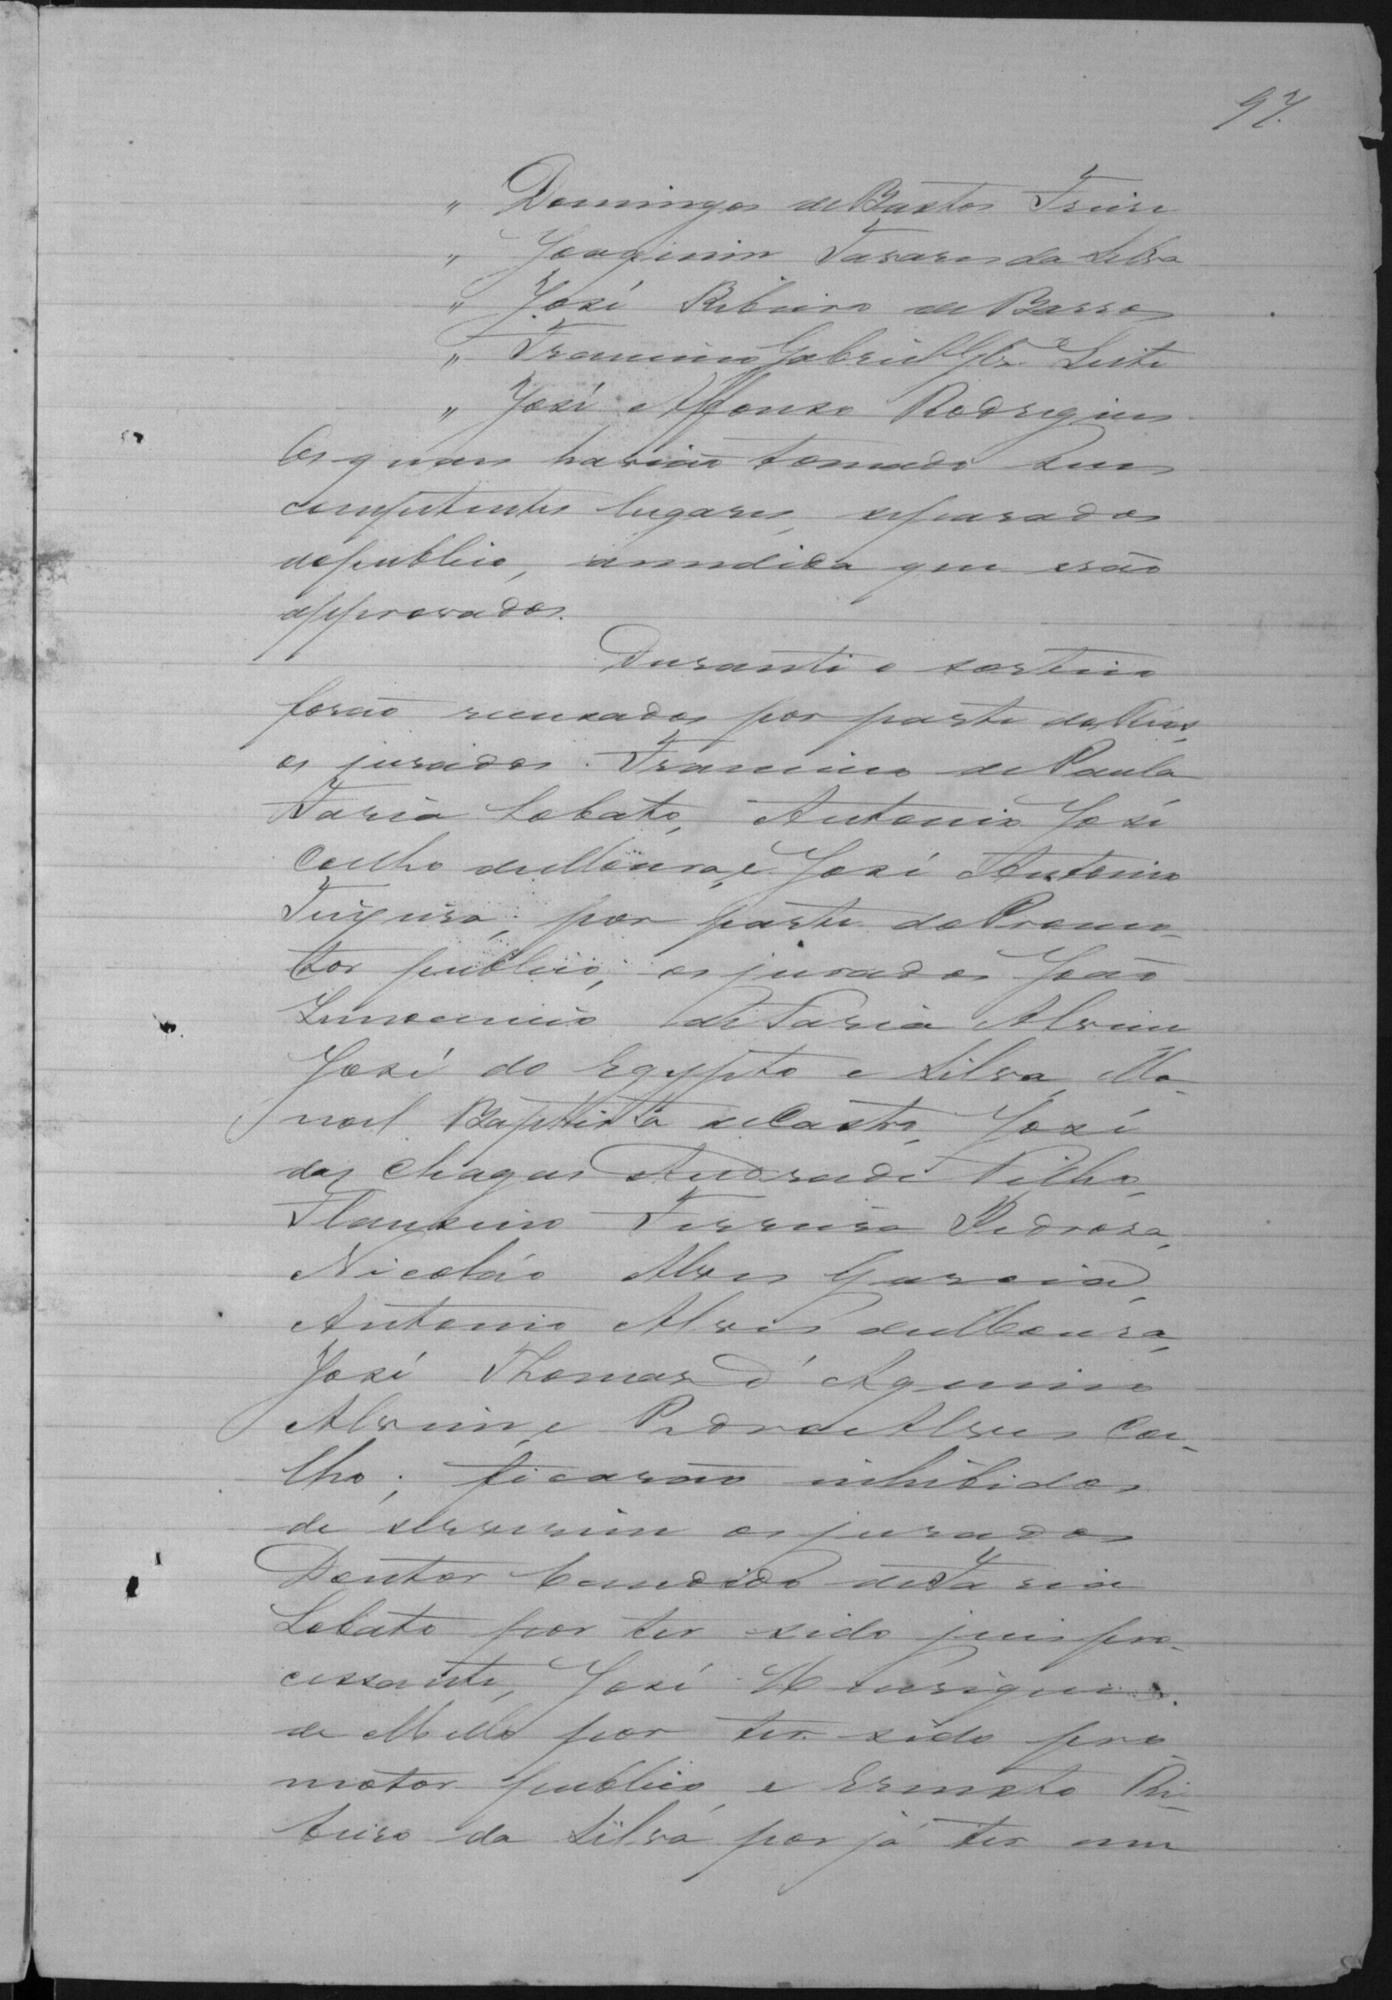 97.
" Domingos de Bastos Freire
" Joaquim Tavares da Silva
" José Ribeiro de Barros
" Francisco Gabriel Leite
" José Affonso Rodrigues
Os quaes havião tomado seus
competentes lugares, separados
do publico, a medida que erão
approvados.
Durante o sorteio
forão recusados por parte do Réos,
os jurados Francisco de Paula
Faria Lobato, Antonio José
Coelho de Moura, e José Antonio
por parte do Promo-
tor publico, os jurados João
Innocencio de Faria Alvim
José do Egypto e Silva, Ma-
noel Baptista de Castro, José
das Chagas Andrade Filho,
Flauzino Ferreira Pedrosa,
Nicoláo Alves Garcia,
Antonio Alves de Moura,
José Thomas d'Aquino
Alvim, e Pedro Alves Coe-
lho; ficarão inhibidos
de servirem os jurados
Doutor Candido de Faria
Lobato por ter sido juis pro-
cessante, José Henriques
de Mello por ter sido pro
motor publico, e Ernesto Ri-
beiro da Silva por já ter um